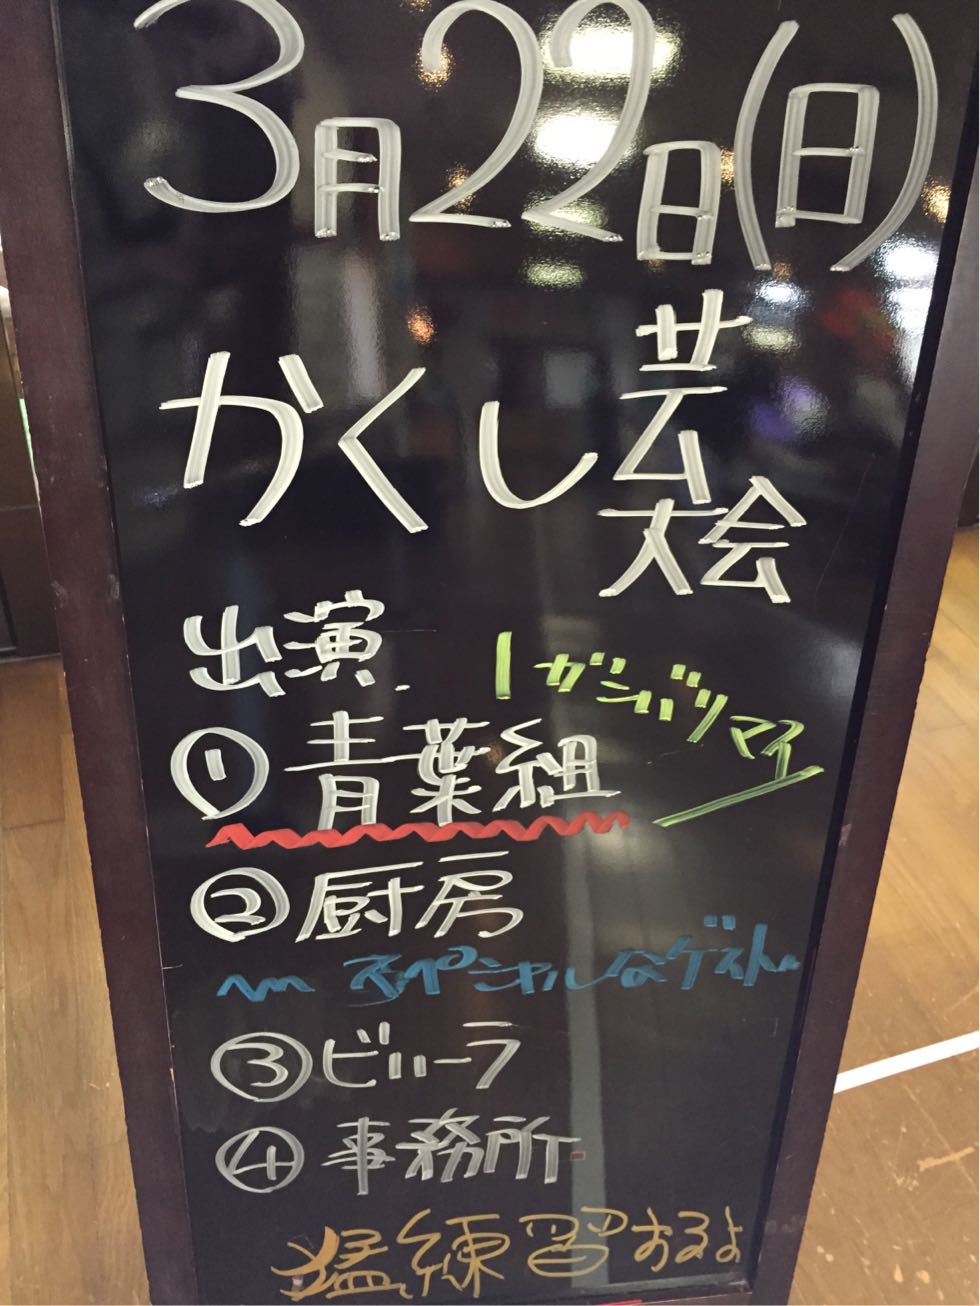 3月22日(日)
かくし芸大会
出演.
ガンバリマス
①青葉組
②厨房
スペシャルなゲスト
③ビハーラ
④事務所
猛練習するよ